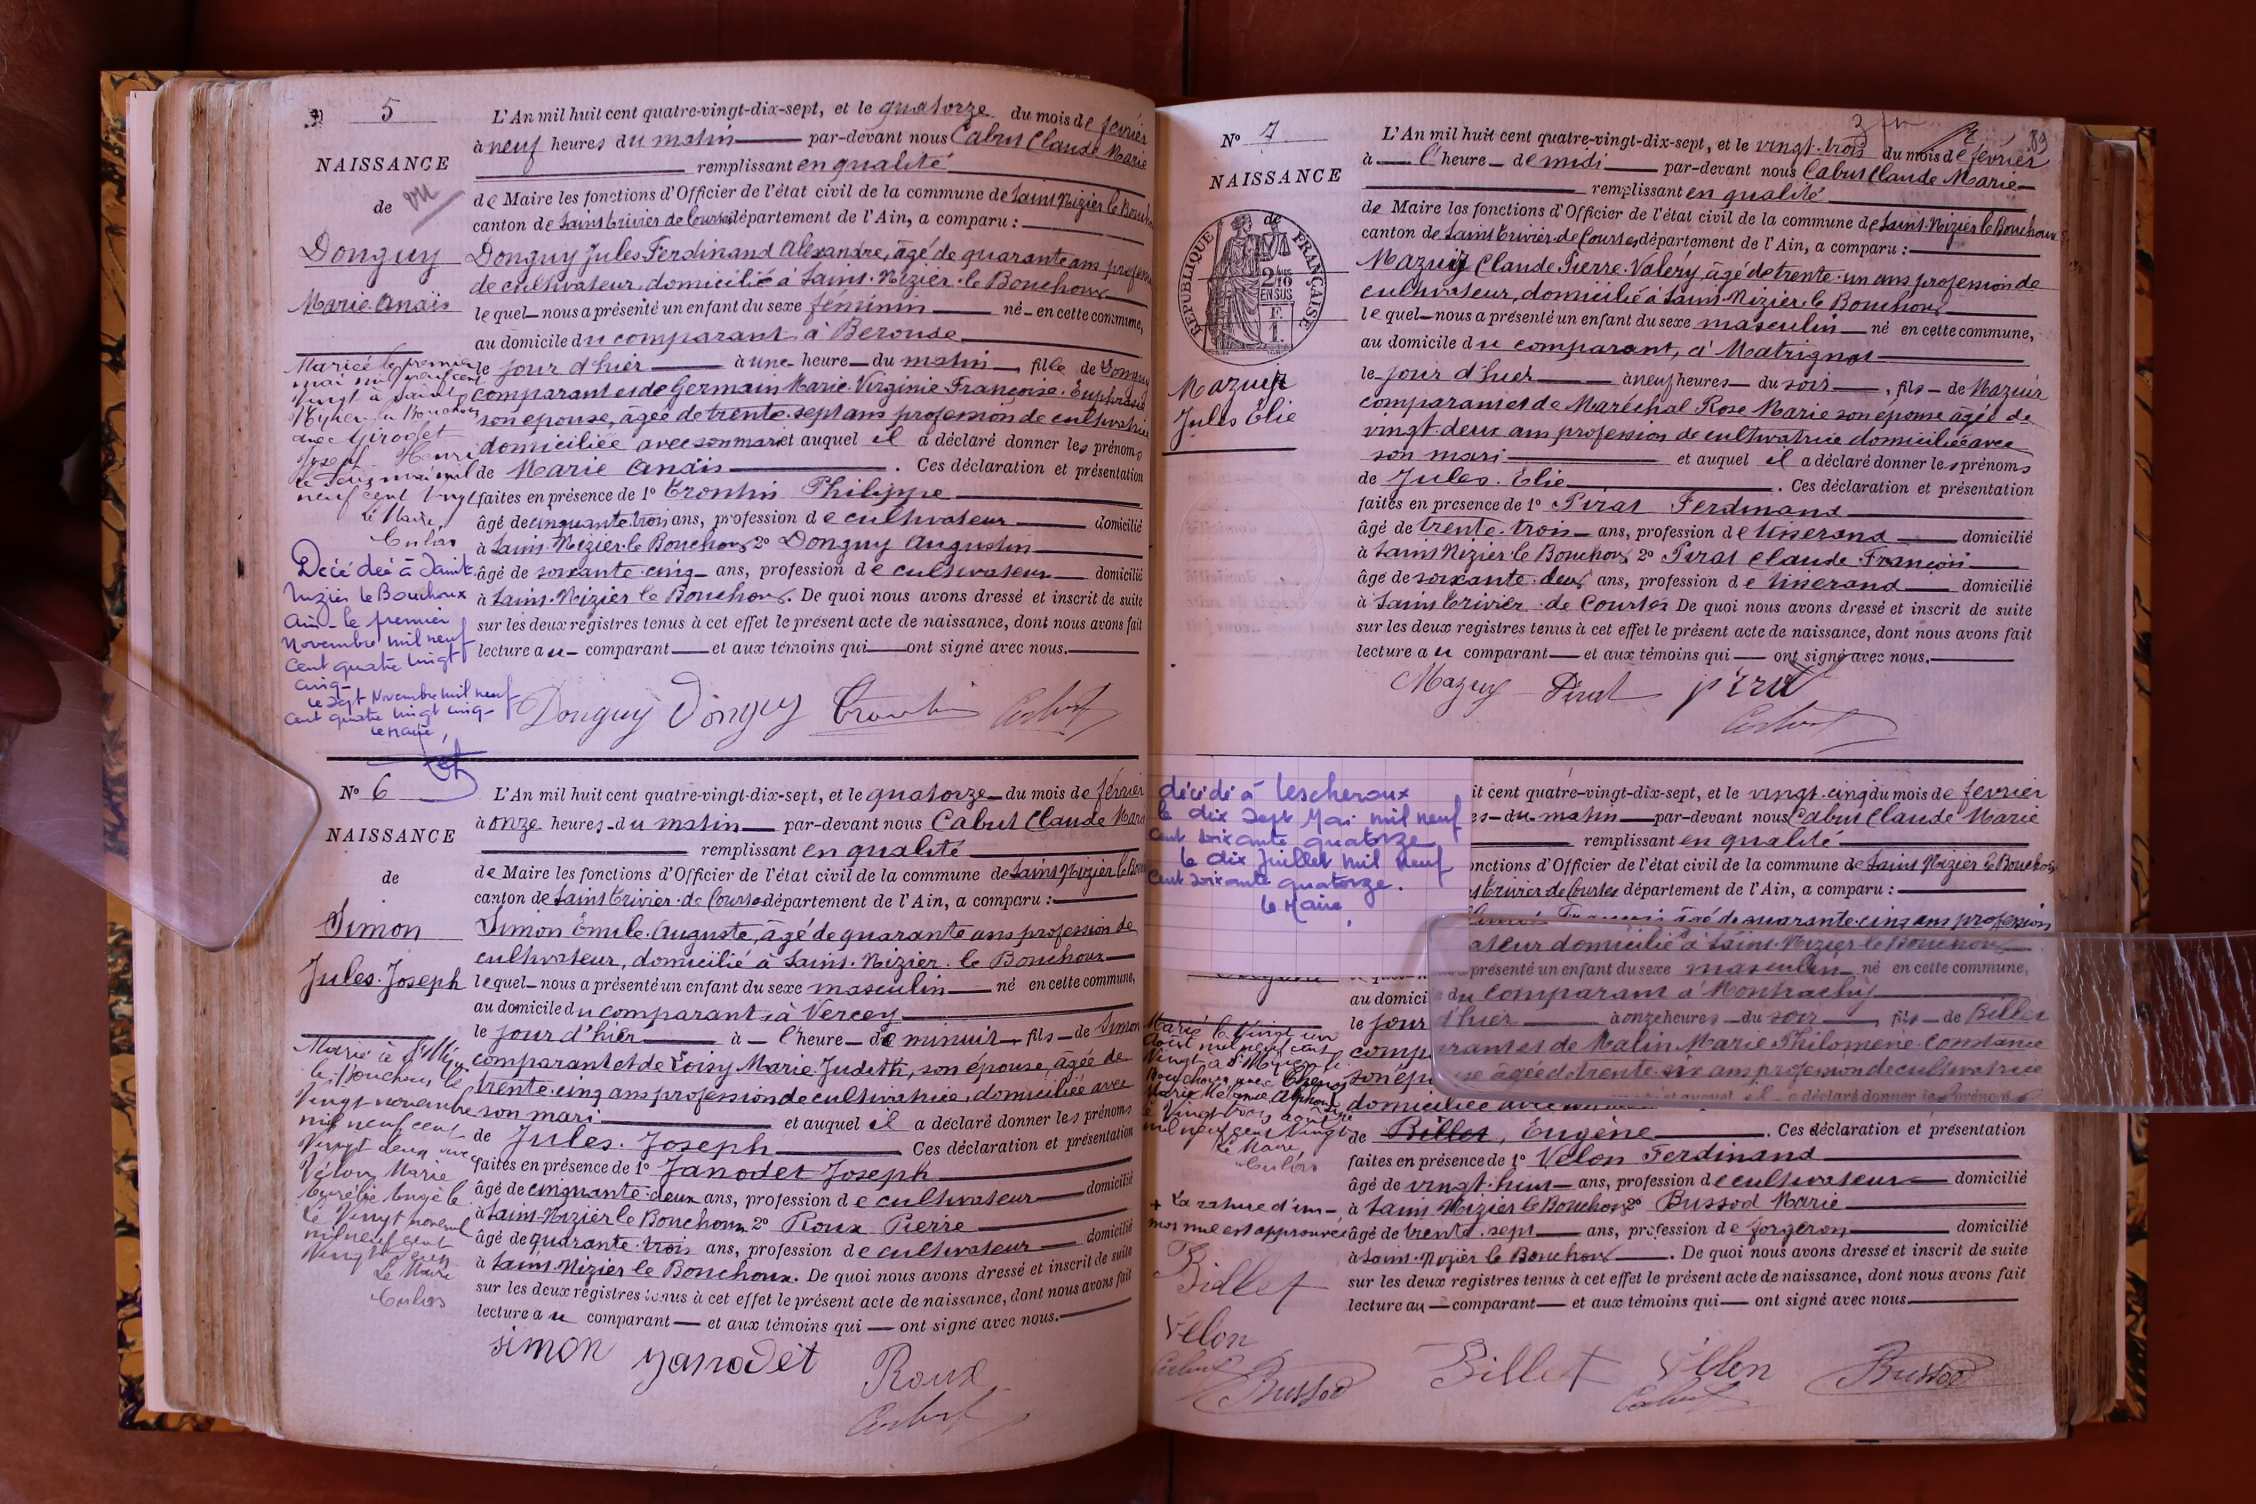 5
NAISSANCE
de
vu
Donguy
Marie Anaïs
L'An mil huit cent quatre-vingt-dix-sept, et le quatorze du mois de février
à neuf heures du matin par-devant nous Cabut Claude Marie
remplissant en qualité
de Maire les fonctions d'Officier de l'état civil de la commune de Saint Nizier le Bouchoux
canton de Saint Trivier de Courtes département de l'Ain, a comparu :
Donguy Jules Ferdinand Alexandre, âgé de quarante ans profession
de cultivateur domicilié à Saint-Nizier-le Bouchoux
lequel nous a présenté un enfant du sexe féminin né en cette commune,
au domicile du comparant à Berouse
le jour d'hier à une heure du matin, fille de Donguy
comparant et de Germain Marie Virginie Françoise Euphrasie
son épouse, âgée de trente-sept ans profession de cultivatrice
domiciliée avec son mari et auquel il a déclaré donner les prénoms
de Marie Anaïs . Ces déclaration et présentation
faites en présence de 1º Trontin Philippe
âgé de cinquante-trois ans, profession de cultivateur domicilié
à Saint-Nizier-le Bouchoux 2º Donguy Augustin
âgé de soixante-cinq ans, profession de cultivateur domicilié
à Saint-Nizier le Bouchoux. De quoi nous avons dressé et inscrit de suite
sur les deux registres tenus à cet effet le présent acte de naissance, dont nous avons fait
lecture au comparant et aux témoins qui ont signé avec nous.
Donguy Donguy Trontin Cabut
Mariée le premier
mai mil neuf cent
vingt à Saint
Nizier le Bouchoux
avec Girodet
Joseph Henri
le seize mai mil
neuf cent vingt
Le Maire,
Décédée à Saint
Nizier le Bouchoux
Ain - le premier
Novembre mil neuf
cent quatre vingt
cinq -
le sept Novembre mil neuf
cent quatre vingt cinq -
Le Maire,
Nº 6
NAISSANCE
de
Simon
Jules-Joseph
L'An mil huit cent quatre-vingt-dix-sept, et le quatorze du mois de février
à onze heures du matin par-devant nous Cabut Claude Marie
remplissant en qualité
de Maire les fonctions d'Officier de l'état civil de la commune de Saint Nizier le Bouchoux
canton de Saint Trivier de Courtes département de l'Ain, a comparu :
Simon Emile Auguste, âgé de quarante ans profession de
cultivateur, domicilié à Saint-Nizier-le Bouchoux
lequel nous a présenté un enfant du sexe masculin né en cette commune,
au domicile du comparant, à Vercey
le jour d'hier à l'heure de minuit, fils de Simon
comparant et de Loisy Marie Judith, son épouse, âgée de
trente-cinq ans profession de cultivatrice, domiciliée avec
son mari et auquel il a déclaré donner les prénoms
de Jules-Joseph Ces déclaration et présentation
faites en présence de 1º Janodet Joseph
âgé de cinquante-deux ans, profession de cultivateur domicilié
à Saint-Nizier le Bouchoux 2º Roux Pierre
âgé de quarante-trois ans, profession de cultivateur domicilié
à Saint-Nizier le Bouchoux. De quoi nous avons dressé et inscrit de suite
sur les deux registres tenus à cet effet le présent acte de naissance, dont nous avons fait
lecture au comparant et aux témoins qui ont signé avec nous.
simon janodet Roux
Cabut
Marié à St Nizier
le Bouchoux le
vingt novembre
mil neuf cent
vingt deux avec
Vélon Marie
Aurélie Angèle
Le vingt novembre
mil neuf cent
vingt deux
Le Maire
Nº 7
NAISSANCE
de
RÉPUBLIQUE FRANÇAISE
2/10
EN SUS
Mazuir
Jules Élie
89
L'An mil huit cent quatre-vingt-dix-sept, et le vingt-trois du mois de février
à l'heure de midi par-devant nous Cabut Claude Marie
remplissant en qualité
de Maire les fonctions d'Officier de l'état civil de la commune de Saint-Nizier le Bouchoux
canton de Saint Trivier-de Courtes département de l'Ain, a comparu :
Mazuy Claude Pierre Valéry, âgé de trente-un ans profession de
cultivateur, domicilié à Saint-Nizier-le Bouchoux
lequel nous a présenté un enfant du sexe masculin né en cette commune,
au domicile du comparant, à Matrignat
le jour d'hier à neuf heures du soir, fils de Mazuir
comparant et de Maréchal Rose Marie son épouse âgée de
vingt-deux ans profession de cultivatrice domiciliée avec
son mari et auquel il a déclaré donner les prénoms
de Jules-Elie . Ces déclaration et présentation
faites en présence de 1º Pirat Ferdinand
âgé de trente-trois ans, profession de tisserand domicilié
à Saint Nizier le Bouchoux 2º Pirat Claude François
âgé de soixante-deux ans, profession de tisserand domicilié
à Saint Trivier de Courtes De quoi nous avons dressé et inscrit de suite
sur les deux registres tenus à cet effet le présent acte de naissance, dont nous avons fait
lecture au comparant et aux témoins qui ont signé avec nous.
Mazuy Pirat pirat
Cabut
décédé à Lescheroux
le dix sept Mai mil neuf
cent soixante quatorze
le dix Juillet mil neuf
cent soixante quatorze.
Le Maire,
it cent quatre-vingt-dix-sept, et le vingt-cinq du mois de février
es du matin par-devant nous Cabut Claude Marie
remplissant en qualité
onctions d'Officier de l'état civil de la commune de Saint Nizier le Bouchoux
t Trivier de Courtes département de l'Ain, a comparu :
François âgé de quarante-cinq ans profession
ateur domicilié à Saint-Nizier le Bouchoux
présenté un enfant du sexe masculin né en cette commune,
au domicile du comparant à Montrachy
le jour d'hier à onze heures du soir, fils de Billet
comparant et de Malin Marie Philomène Constance
son épouse âgée de trente-six ans profession de cultivatrice
domiciliée avec et auquel il a déclaré donner les prénoms
de Billet, Eugène . Ces déclaration et présentation
faites en présence de 1º Vélon Ferdinand
âgé de vingt-huit ans, profession de cultivateur domicilié
à Saint Nizier le Bouchoux 2º Bussod Marie
âgé de trente-sept ans, profession de forgeron domicilié
à Saint-Nizier le Bouchoux . De quoi nous avons dressé et inscrit de suite
sur les deux registres tenus à cet effet le présent acte de naissance, dont nous avons fait
lecture au comparant et aux témoins qui ont signé avec nous
Marié le vingt un
août mil neuf cent
vingt à St Nizier le
Bouchoux avec
Marie Mélanie Alphonsine
le vingt trois août
mil neuf cent vingt
Le Maire
+ La rature d'un
mot nul est approuvée
Billet
Vélon
Cabut
Bussod
Billet Vélon Bussod
Cabut